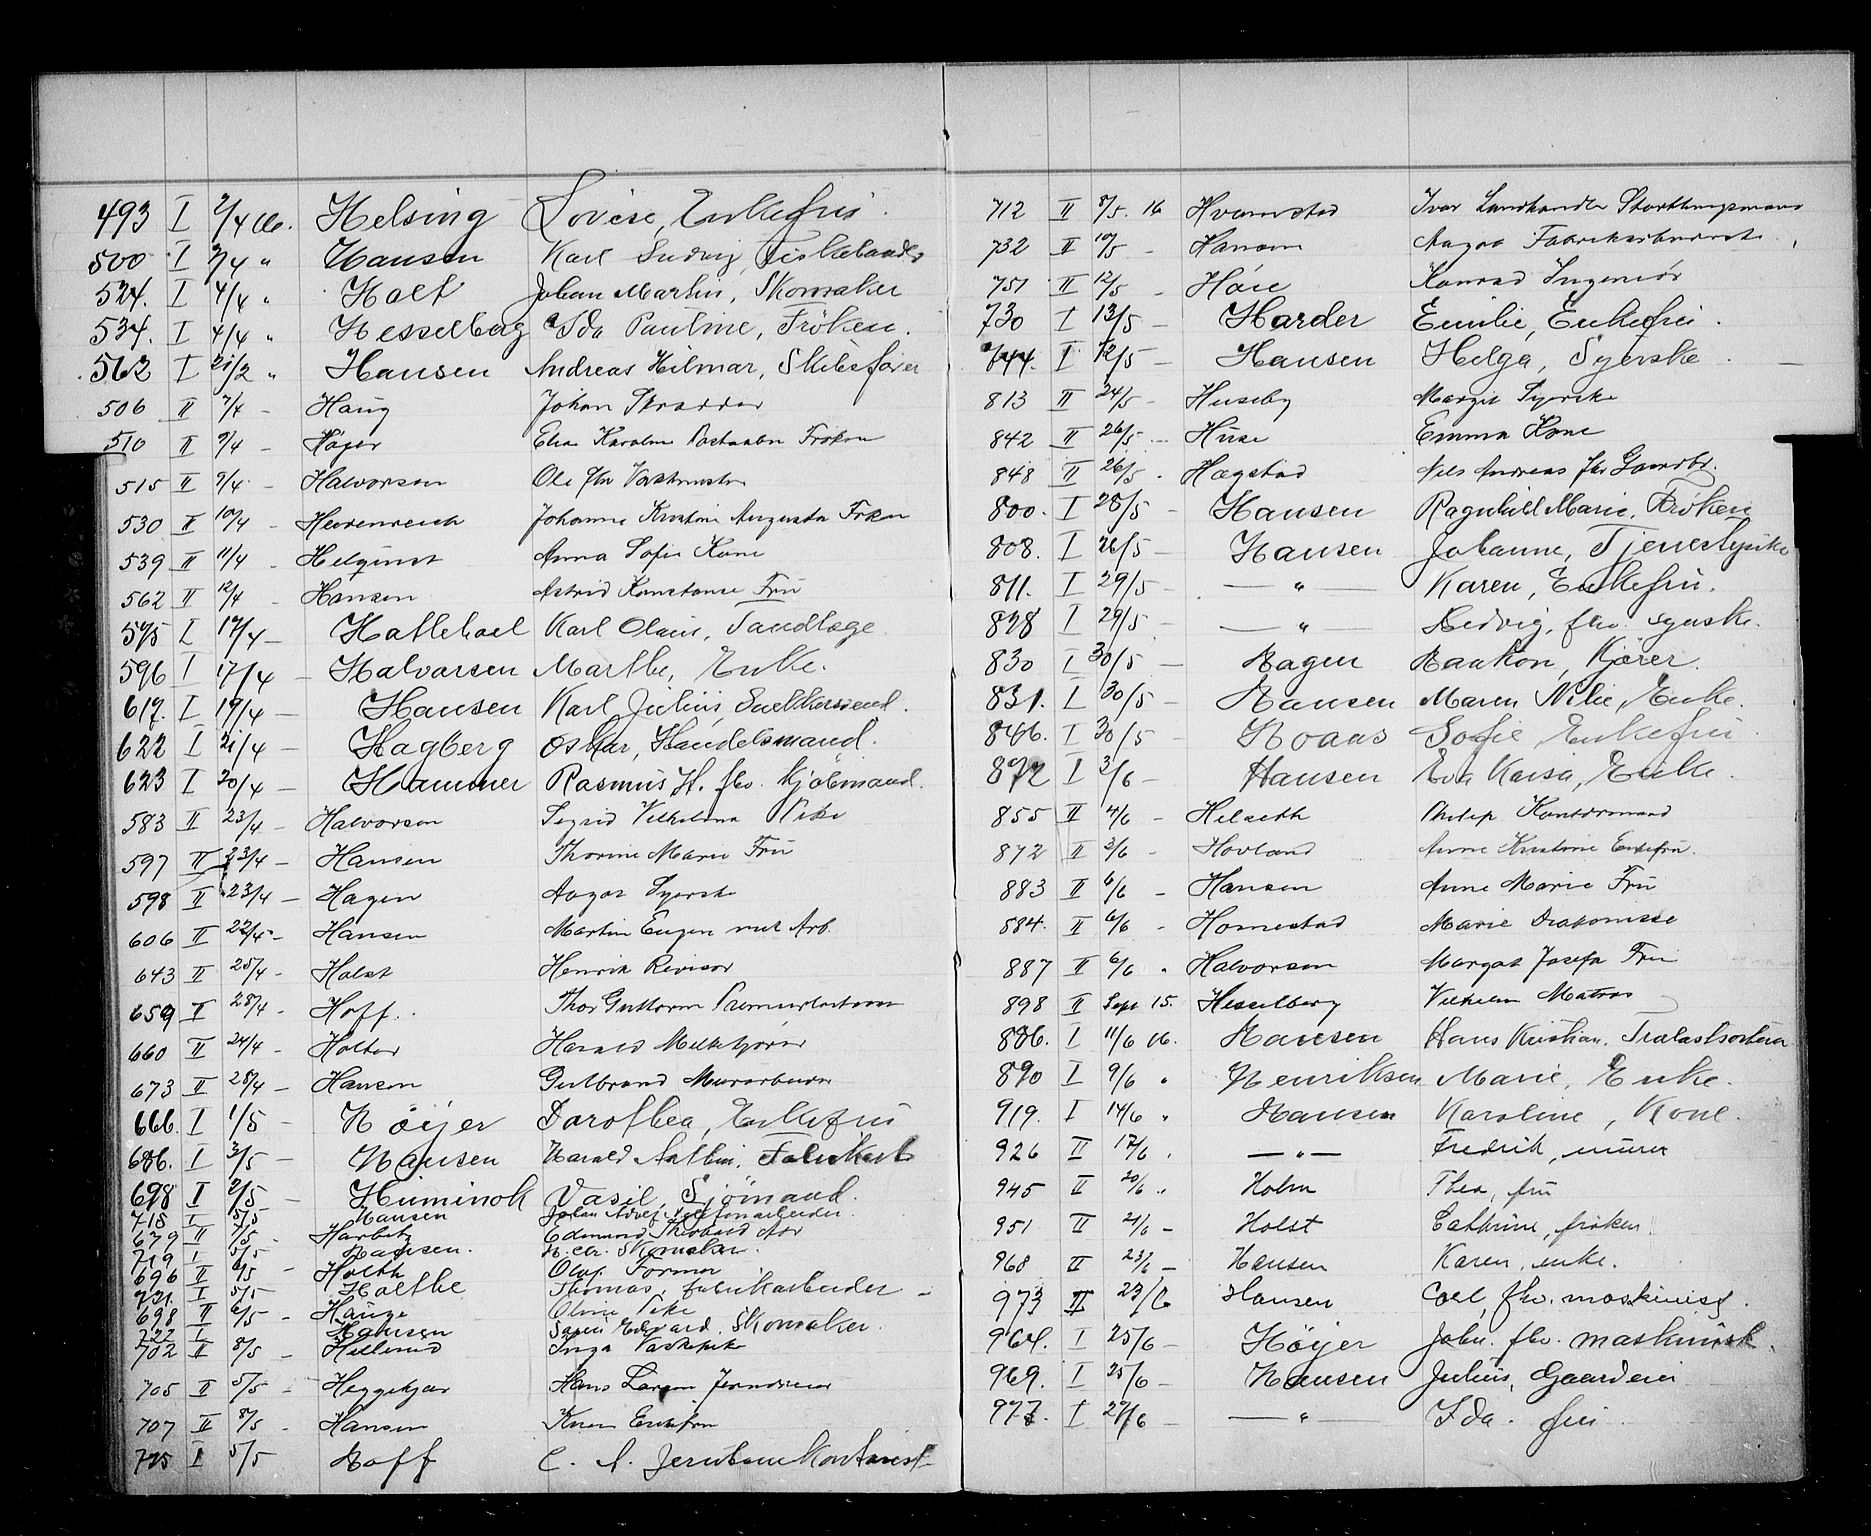 493 I 2/4 16. Helsing Lovise, Enkefru.
500 I 3/4 " Hansen Karl Ludvig, Fiskehandler
524. I 4/4 " Holt Johan Martin, Skomaker
534. I 4/4 " Hesselberg Ida Pauline, Fröken.
562 I 21/2 " Hansen Andreas Hilmar, Skibsfører
506 II 7/4 - Haug Johan Skrædder
510 II 9/4 - Höyer Elise Karoline Postaabn Frøken
515 II 9/4 - Halvorsen Ole fhv
530 II 10/4 - Heerenreich Johanne Kristine Augusta Frken
539 II 11/4 - Helqvist Anna Sofie Kone
562 II 12/4 - Hansen Astrid Konstanse Fru
575 I 17/4 - Hallehoel Karl Olaus, Tandlæge
596 I 17/4 - Halvorsen Marthe, Enke.
617. I 19/4 - Hansen Karl Julius, Snekkersvend.
622 I 21/4 - Hagberg Oskar, Handelsmand.
623 I 20/4 - Hammer Rasmus H. fhv. Kjöbmand.
583 II 23/4 - Halvorsen Sigrid Vilhelmine Pike
597 II 23/4 - Hansen Thorine Marie Fru
598 II 23/4 - Hagen Aagot Syerske
606 II 22/4 - Hansen Martin Eugen mek Arb.
643 II 25/4 - Holst Henrik Revisor
659 II 28/4 - Hoff. Thor Guttorm Premierløitnant
660 II 24/4 - Holter Harald Melkekjører
673 II 28/4 - Hansen Gulbrand Murarbeider
666. I 1/5 - Höijer Dorothea, Enkefru
686. I 3/5 - Hansen Harald Fabrikarb
698 I 2/5 - Huminok Vasil, Sjömand.
715 I 5/5 Hansen Johan Adolf Telefonarbeider.
679 II 7/5 - Harbitz Edmund Theobald
719 I 5/5 Hansen. H. Chr. Skomaker.
696 II 6/5 - Holth Olaf Former
721. I 5/5 Holthe Thomas, fabrikarbeider -
698 II 6/5 - Hauge Oline Pike
722 I Hansen Edvard. Skomaker.
702 II 8/5 - Hellerud Inga Vaskepike
705 II 5/5 - Heggekjær Hans Larsen Jerndreier
707 II 8/5 - Hansen Karen Enkefru
725 I 5/5 Hoff C. A. Jernbanekontorist
712 II 8/5. 16 Hvamstad Ivar Landhandler Storthingsmand
732 II 10/5 - Hansen Aagot Fabrikarbeiderske
751 II 12/5 - Høie Konrad Ingeniør
730 I 13/5 - Harder Emilie, Enkefru.
744. I 12/5 - Hansen Helga, Syerske. -
813 II 24/5 - Huseby Margit Syerske
842 II 26/5 - Huse Emma Kone
848 II 26/5 - Hægstad Nils Andreas fhv Gaardbr.
800. I 28/5 - Hansen Ragnhild Marie, Fröken
808. I 26/5 - Hansen Johanne, Tjenestepike
811. I 29/5 - — " — Karen, Enkefru.
828 I 29/5 - — " — Hedvig, fhv. syerske.
830 I 30/5 - Hagen Haakon, Kjører.
831. I 30/5 - Hansen Maren Nilie, Enke.
846. I 30/5 - Hoaas Sofie Enkefru
872 I 3/6 - Hansen Eva Kaisa, Enke.
855 II 4/6 - Helseth Philip Kontormand
872 II 3/6 - Hovland Anne Kristine Enkefru.
883 II 6/6 - Hansen Anne Marie Fru
884. II 6/6 - Homestad Marie Diakonisse
887 II 6/6 " Halvorsen Margot Josefa Fru
898 II Sept 15. Hesselberg Vilhelm Matros
886. I 11/6 16. Hansen Hans Kristian, Trælastsorterer
890 I 9/6 " Henriksen Marie, Enke.
919. I 14/6 " Hansen Karoline, Kone.
926 II 17/6 " — " — Fredrik, murer
945 II 20/6 " Holm Thea, fru
951 II 21/6 - Holst Cathrine, frøken
968 II 23/6 - Hansen Karen, enke.
973 II 23/6 Hansen Carl fhv. maskinist.
964. I 25/6 - Höijer John. fhv. maskinist.
969. I 25/6 - Hansen Julius, Gaardeier
977. I 27/6 - — " — Ida. fru